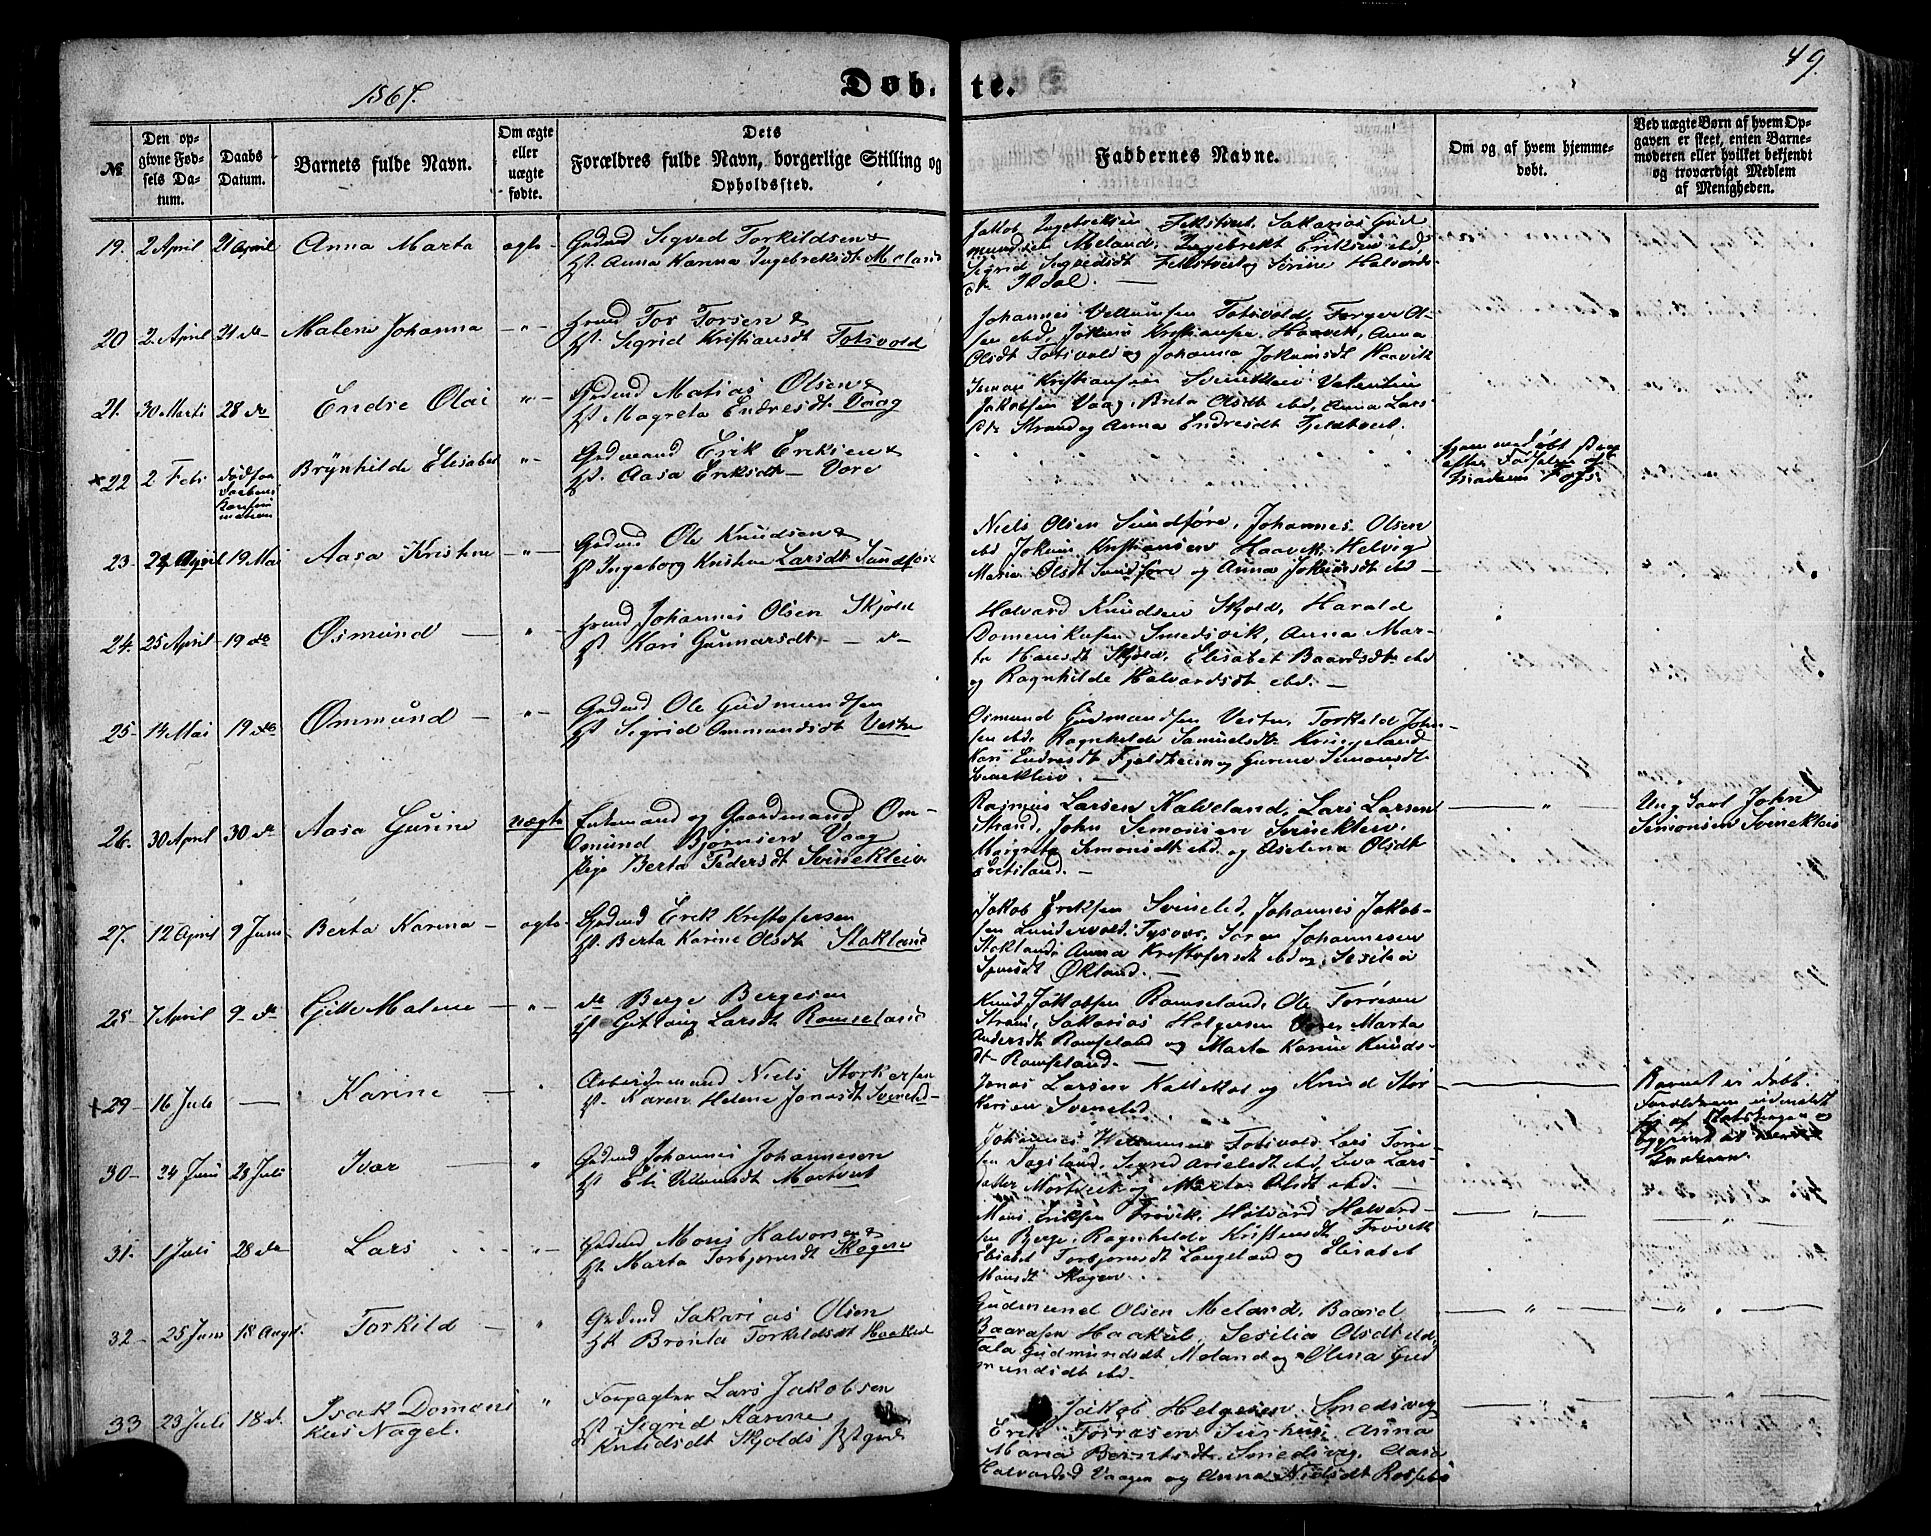 49.
1867.
Döbte.
№
Den opgivne Fødsels Datum.
Daabs Datum.
Barnets fulde Navn.
Om ægte eller uægte fødte.
Dets Forældres fulde Navn, borgerlige Stilling og Opholdssted.
Faddernes Navne.
Om og af hvem hjemmedøbt.
Ved uægte Børn af hvem Opgaven er skeet, enten Barnemoderen eller hvilket bekjendt og troværdigt Medlem af Menigheden.
19. 2 April 21 April Anna Marta ægte
Gdmd Sigved Torkildsen &
H. Anna Karina Ingebrektsdt Meland
Jakob Ingebreksen Sakarias Gud
mundsen Meland, Ingebrekt Eriksen ibd
Sigrid Sigvedsdt og Serine Halvards
dt
20 2 April 21 do Malene Johanna -"-
Tor Torsen &
H. Sigrid Kristiansdt Totsvold
Johannes Villumsen Totsvold, Torger Ol-
sen ibd, Jokum Kristiansen Haavik, Anna
Olsdt Totsvold og Johanna Jokumsdt Haavik
21. 30 Marti 28 do Endre Olai "-
Gdmd Matias Olsen &
H. Magreta Endresdt Vaag
Simon Kristiansen Svinekleiv Valentin
Jakobsen Vaag, Brita Olsdt ibd, Anna Lars
dt Strand og Anna Endresdt
x 22 2 Feb Brynhilde Elisabet "-
Gdmand Erik Eriksen &
H. Aasa Eriksdt - Vore
efter Fødselen af
23 24 April 19 Mai Aasa Kristine -"-
Gdmd Ole Knudsen &
H. Ingeborg Kristine Larsdt Sundføre
Niels Olsen Sundføre, Johannes Olsen
ibd Jokum Kristiansen Haavik, Helvig
Maria Olsdt Sundføre og Anna Jokumsdt ibd -
24. 25 April 19 do Osmund - "-
Johannes Olsen Skjold
H. Kari Gunnarsdt - do
Halvard Knudsen Skjold, Harald
Domenikusen Smedsvik, Anna Mar-
ta Hansdt Skjold, Elisabet Baardsdt ibd
og Ragnhilde Halvardsdt ibd. -
25- 14 Mai 19 do Ommund - "-
Gdmd Ole Gudmundsen
H. Sigrid Ommundsdt Vestre
Osmund Gudmundsen Vestre, Torkild John-
sen ibd, Ragnhilde Samuelsdt Kringeland
Kari Endresdt Fjeldheim og Gurine Simonsdt
Svinekleiv. -
26. 30 April 30 do Aasa Gurine uægte
Enkemand og Gaardmand Om-
mund Bjørnsen Vaag
Pige Berta Pedersdt Svinekleiv
Rasmus Larsen Kalveland, Lars Larsen
Strand, John Simonsen Svinekleiv,
Magreta Simonsdt ibd. og Aselena Olsdt
- " -
Ung Karl John
Simonsen Svinekleiv
27. 12 April 9 Juni Berta Karina - ægte
Gdmd Erik Kristofersen
H. Berta Karine Olsdt Stakland
Jakob Eriksen Svineled, Johannes Jakob-
sen Lundervold, Tysvær, Søren Johannesen
Stakland, Anna Kristofersdt ibd og Sesilia
Økland. -
28- 7 April 9 do Gitte Malene - "-
do Berge Bergesen
H. Gitlaug Larsdt Ramseland
Knud Jakobsen Ramseland, Ole Torresen
Strand, Sakarias Holgersen Marta
Andersdt Ramseland og Marta Karine Knuds-
dt Ramseland. -
x 29- 16 Juli - Karine - "
Arbeidsmand Niels Storkersen
H. Karen Helene Jonasdt Svineled -
Jonas Larsen og Knud Stor
kersen Svineled.
Barnet er døbt.
30- 24 Juni 28 Juli Ivar - "
Gdmd Johannes Johannesen
H. Eli Villumsdt
Johannes Villumsen Totsvold, Lars Torre-
sen
og Marta Olsdt ibd. -
31. 1 Juli 28 do Lars - "-
Gdmd Mons Halvorsen &
H. Marta Torbjørnsdt Skogen
Mons Eriksen Frøvik, Halvard Halvard-
sen Berge, Ragnhilde Kristensdt Frøvik
Elisabet Torbjørnsdt Langeland og Elisabet
Monsdt Skogen.
32- 25 Juni 18 August Torkild - "
Gdmd Sakarias Olsen
H. Bronla Torkildsdt Haakul
Gudmund Olsen Meland, Baard
Baardsen Haakul, Sesilia Olsdt ibd,
Gudmundsdt Meland og Olina Gud
mundsdt ibd.
33 23 Juli 18 do Isak Domeni
kus Nagel. "
Forpagter Lars Jakobsen
H. Sigrid Karine
Knudsdt Skjolds Pstgrd
Jakob Helgesen Smedsvig
Erik Torresen Anna
Maria Berntsdt Smedsvig, Aase
Halvardsd Vaagen og Anna Nielsdt